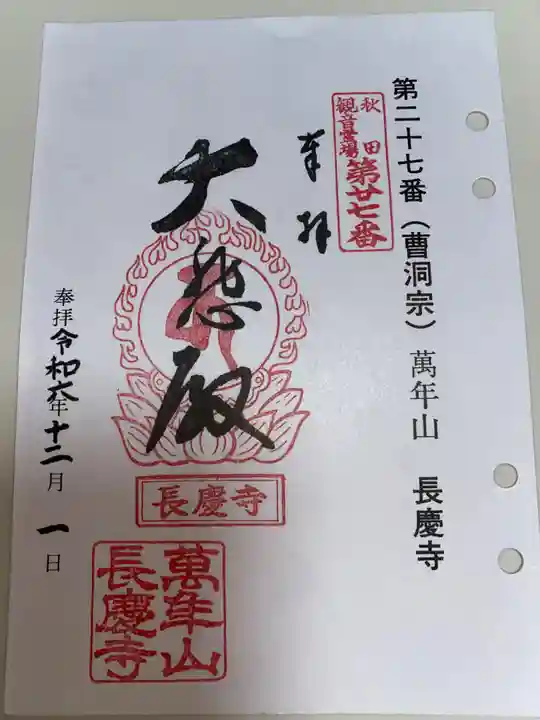 第二十七番（曹洞宗）萬年山 長慶寺
秋田
観音霊場
第廿七番
奉拝
大悲殿
長慶寺
萬年山
長慶寺
奉拝 令和六年十二月一日